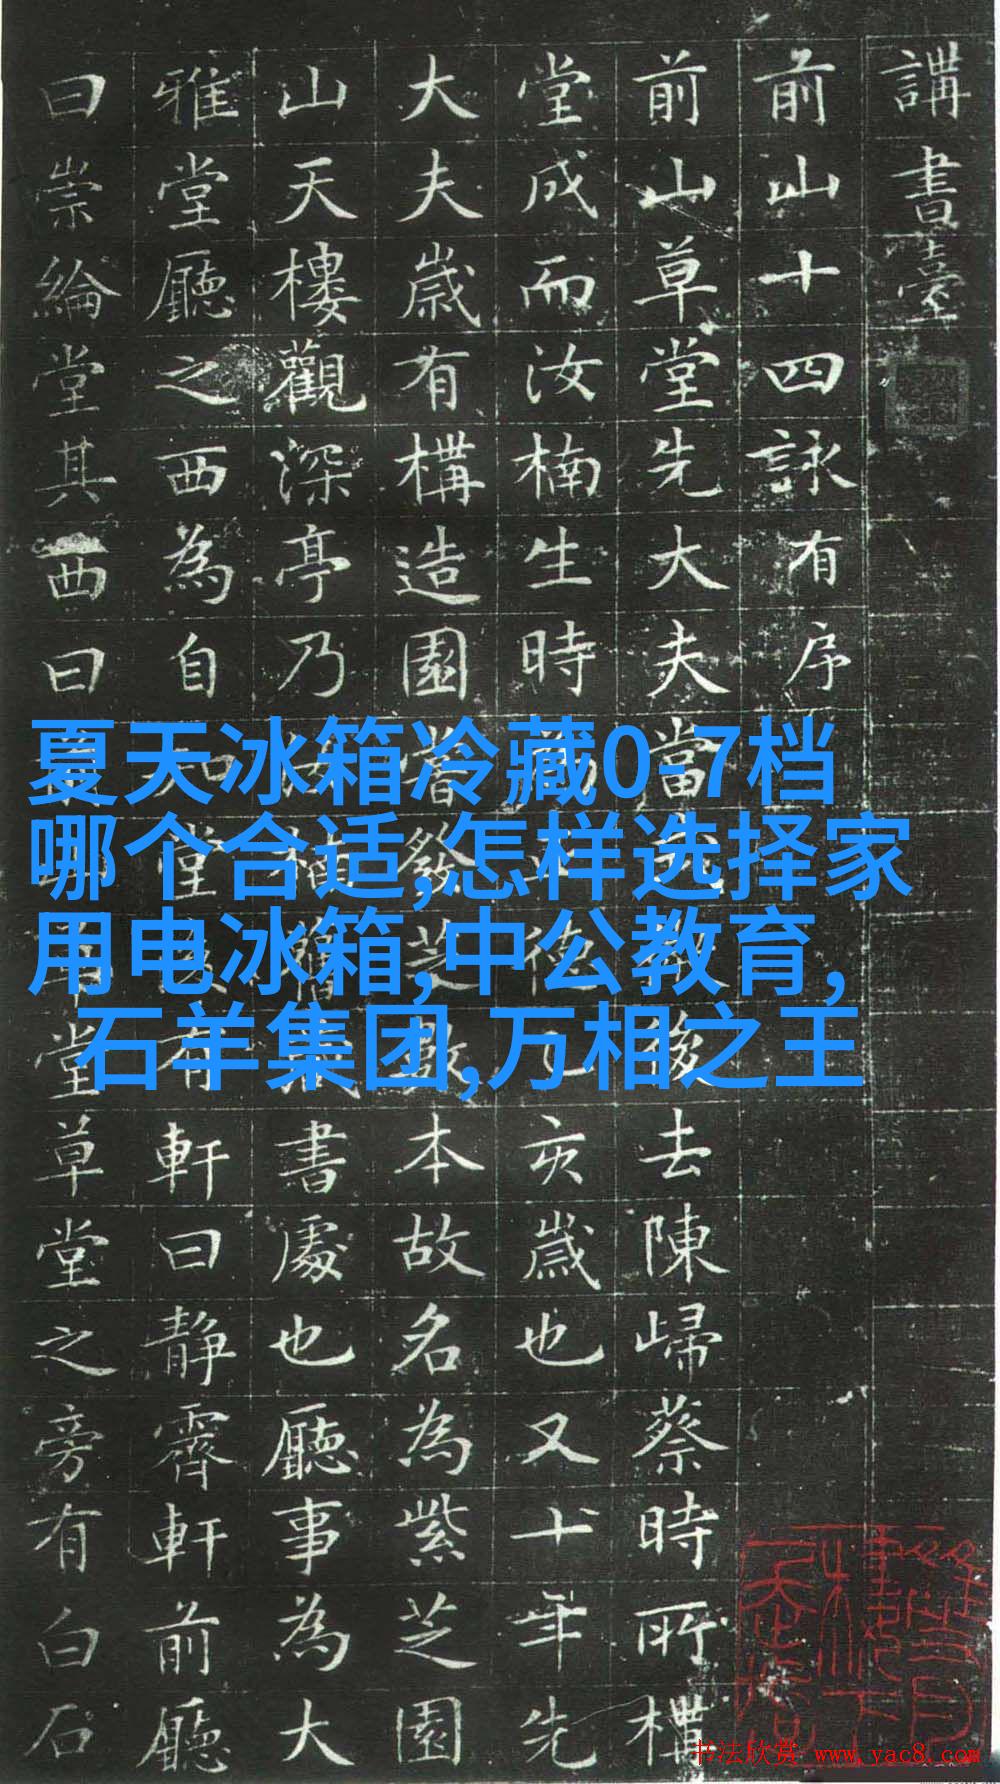 講書臺
前山十四詠有序
前山草堂先大夫當後去陳歸蔡時所構
堂成而汝楠生時亥歲也又十年先
大夫歲有構造園嘗發芝數本故名為紫芝園
山天樓觀深亭乃汝楠書處也廳事為大
雅堂廳之西為自知堂有軒曰靜霽軒前廳
曰崇綸堂其西曰堂草堂之旁有白石
夏天冰箱冷藏0-7档
哪个合适,怎样选择家
用电冰箱,中公教育,
石羊集团,万相之王
书法欣赏 www.yac8.com